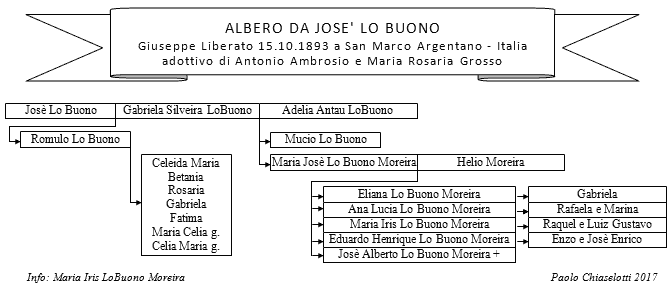 ALBERO DA JOSE' LO BUONO
Giuseppe Liberato 15.10.1893 a San Marco Argentano - Italia
adottivo di Antonio Ambrosio e Maria Rosaria Grosso
Josè Lo Buono Gabriela Silveira LoBuono Adelia Antau LoBuono
Romulo Lo Buono Mucio Lo Buono
Celeida Maria
Betania
Rosaria
Gabriela
Fatima
Maria Celia g.
Celia Maria g.
Maria Josè Lo Buono Moreira Helio Moreira
Eliana Lo Buono Moreira Gabriela
Ana Lucia Lo Buono Moreira Rafaela e Marina
Maria Iris Lo Buono Moreira Raquel e Luiz Gustavo
Eduardo Henrique Lo Buono Moreira Enzo e Josè Enrico
Josè Alberto Lo Buono Moreira +
Info: Maria Iris LoBuono Moreira Paolo Chiaselotti 2017